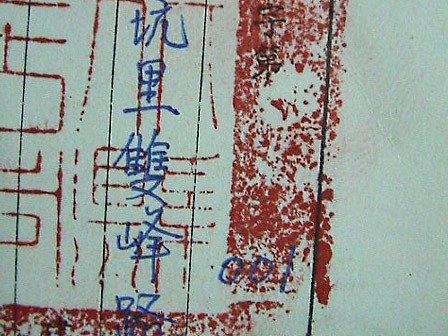 字第
001
坑里雙峰路